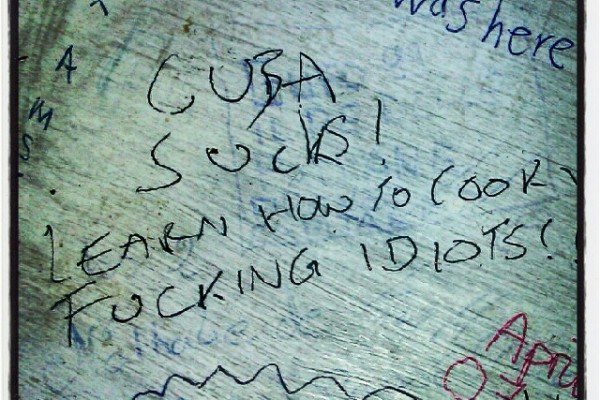 was here
A
M
S
CUBA
SUCKS!
LEARN HOW TO COOK
FUCKING IDIOTS!
Apri